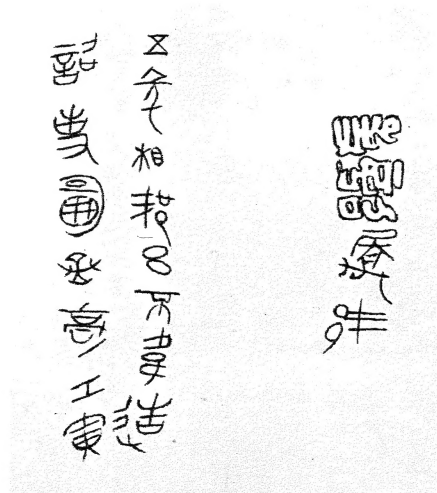 屬邦
五年相邦呂不韋造
詔事圖丞工寅